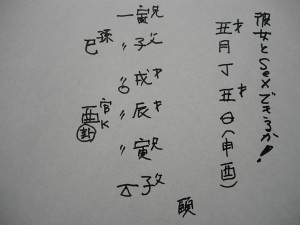 彼女とSexできるか!
丑才月丁丑才日(申酉)
一 寅兄
巳孫 〃 子父
戌才
酉官K 〃 辰才
卦 〃 寅兄
子父